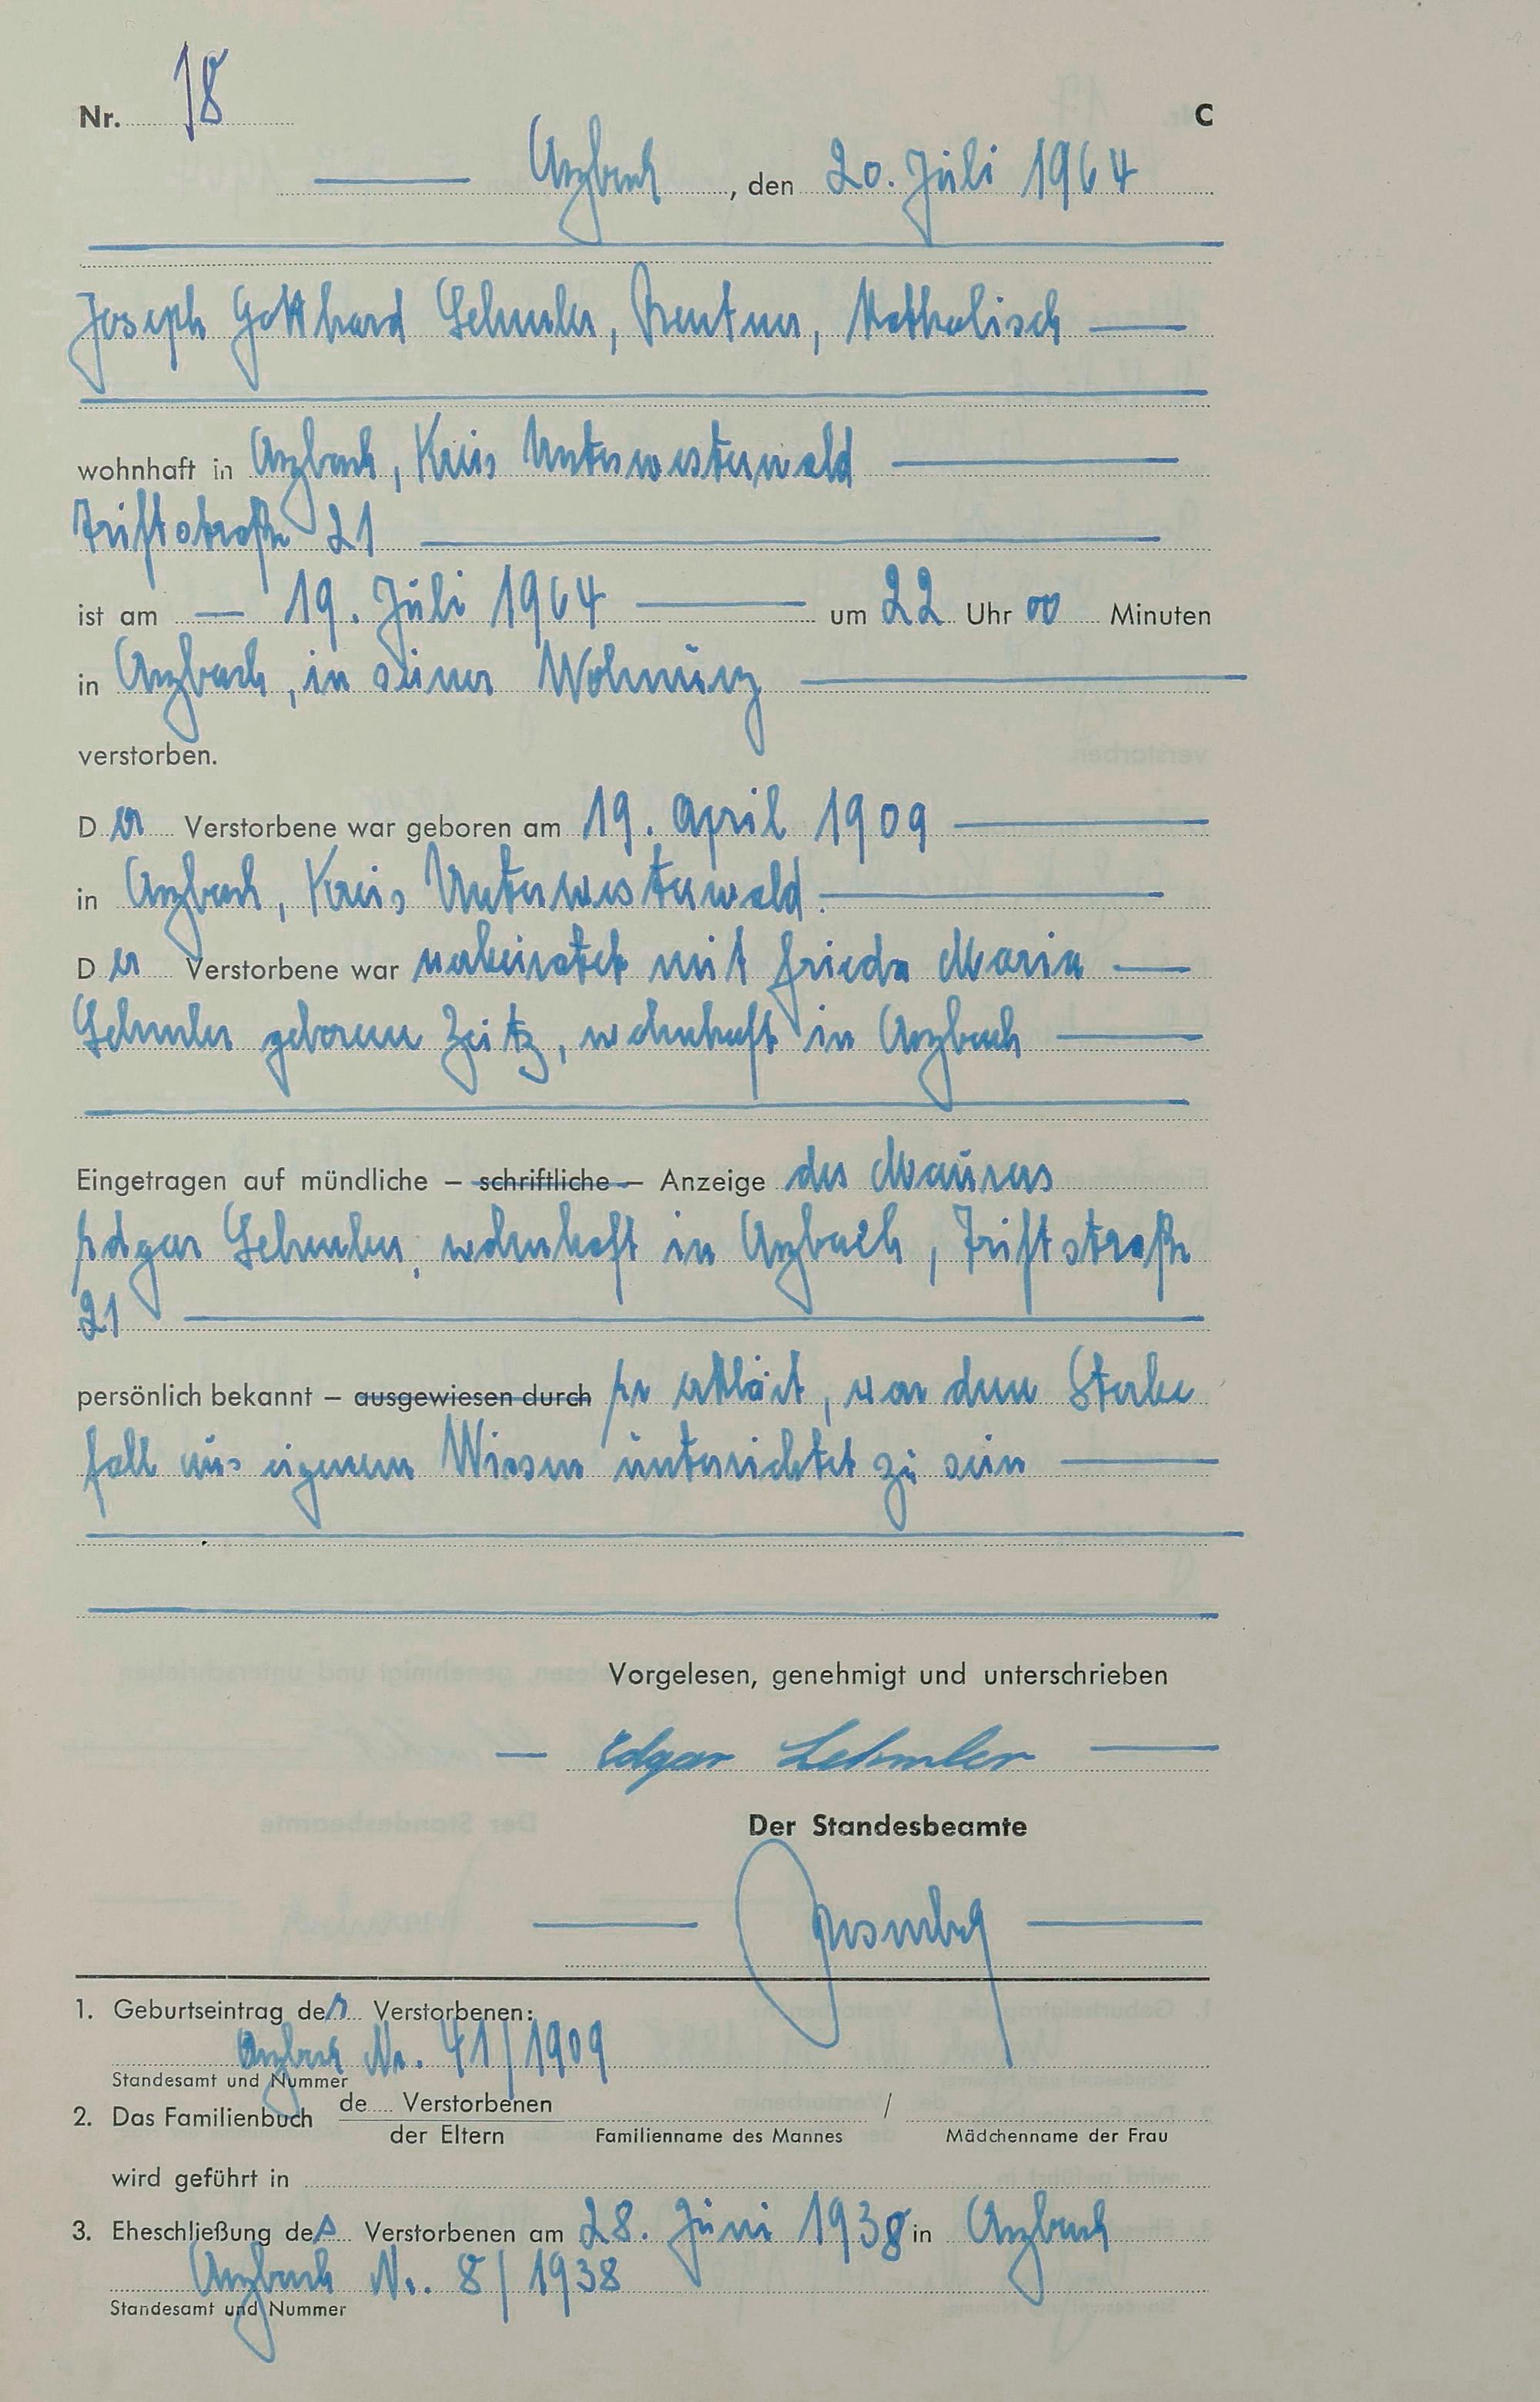 Nr. 18 C
Arzbach, den 20. Juli 1964
Joseph Gotthard Lehmler, Rentner, Katholisch
wohnhaft in Arzbach, Kreis Unterwesterwald
Triftstraße 21
ist am 19. Juli 1964 um 22 Uhr 00 Minuten
in Arzbach, in seiner Wohnung
verstorben.
Der Verstorbene war geboren am 19. April 1909
in Arzbach, Kreis Unterwesterwald.
Der Verstorbene war verheiratet mit Frieda Maria
Lehmler geborene Zeitz, wohnhaft in Arzbach
Eingetragen auf mündliche – schriftliche – Anzeige des Maurers
Edgar Lehmler, wohnhaft in Arzbach, Triftstraße
21
persönlich bekannt – ausgewiesen durch Er erklärt, von dem Sterbe
fall aus eigenem Wissen unterrichtet zu sein
Vorgelesen, genehmigt und unterschrieben
Edgar Lehmler
Der Standesbeamte
1. Geburtseintrag des Verstorbenen:
Arzbach Nr. 41/1909
Standesamt und Nummer
2. Das Familienbuch de Verstorbenen /
der Eltern Familienname des Mannes Mädchenname der Frau
wird geführt in
3. Eheschließung des Verstorbenen am 28. Juni 1938 in Arzbach
Arzbach Nr. 8/1938
Standesamt und Nummer